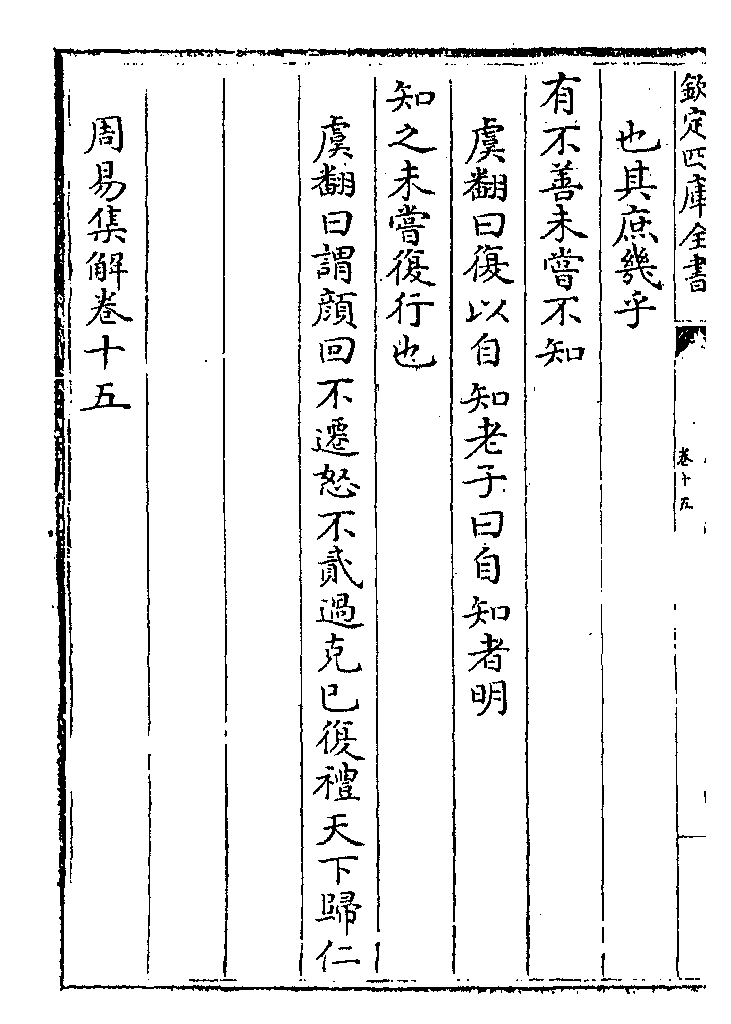 欽定四庫全書
卷十五
也其庶幾乎
有不善未嘗不知
虞翻曰復以自知老子曰自知者明
知之未嘗復行也
虞翻曰謂顔回不遷怒不貳過克已復禮天下歸仁
周易集解卷十五